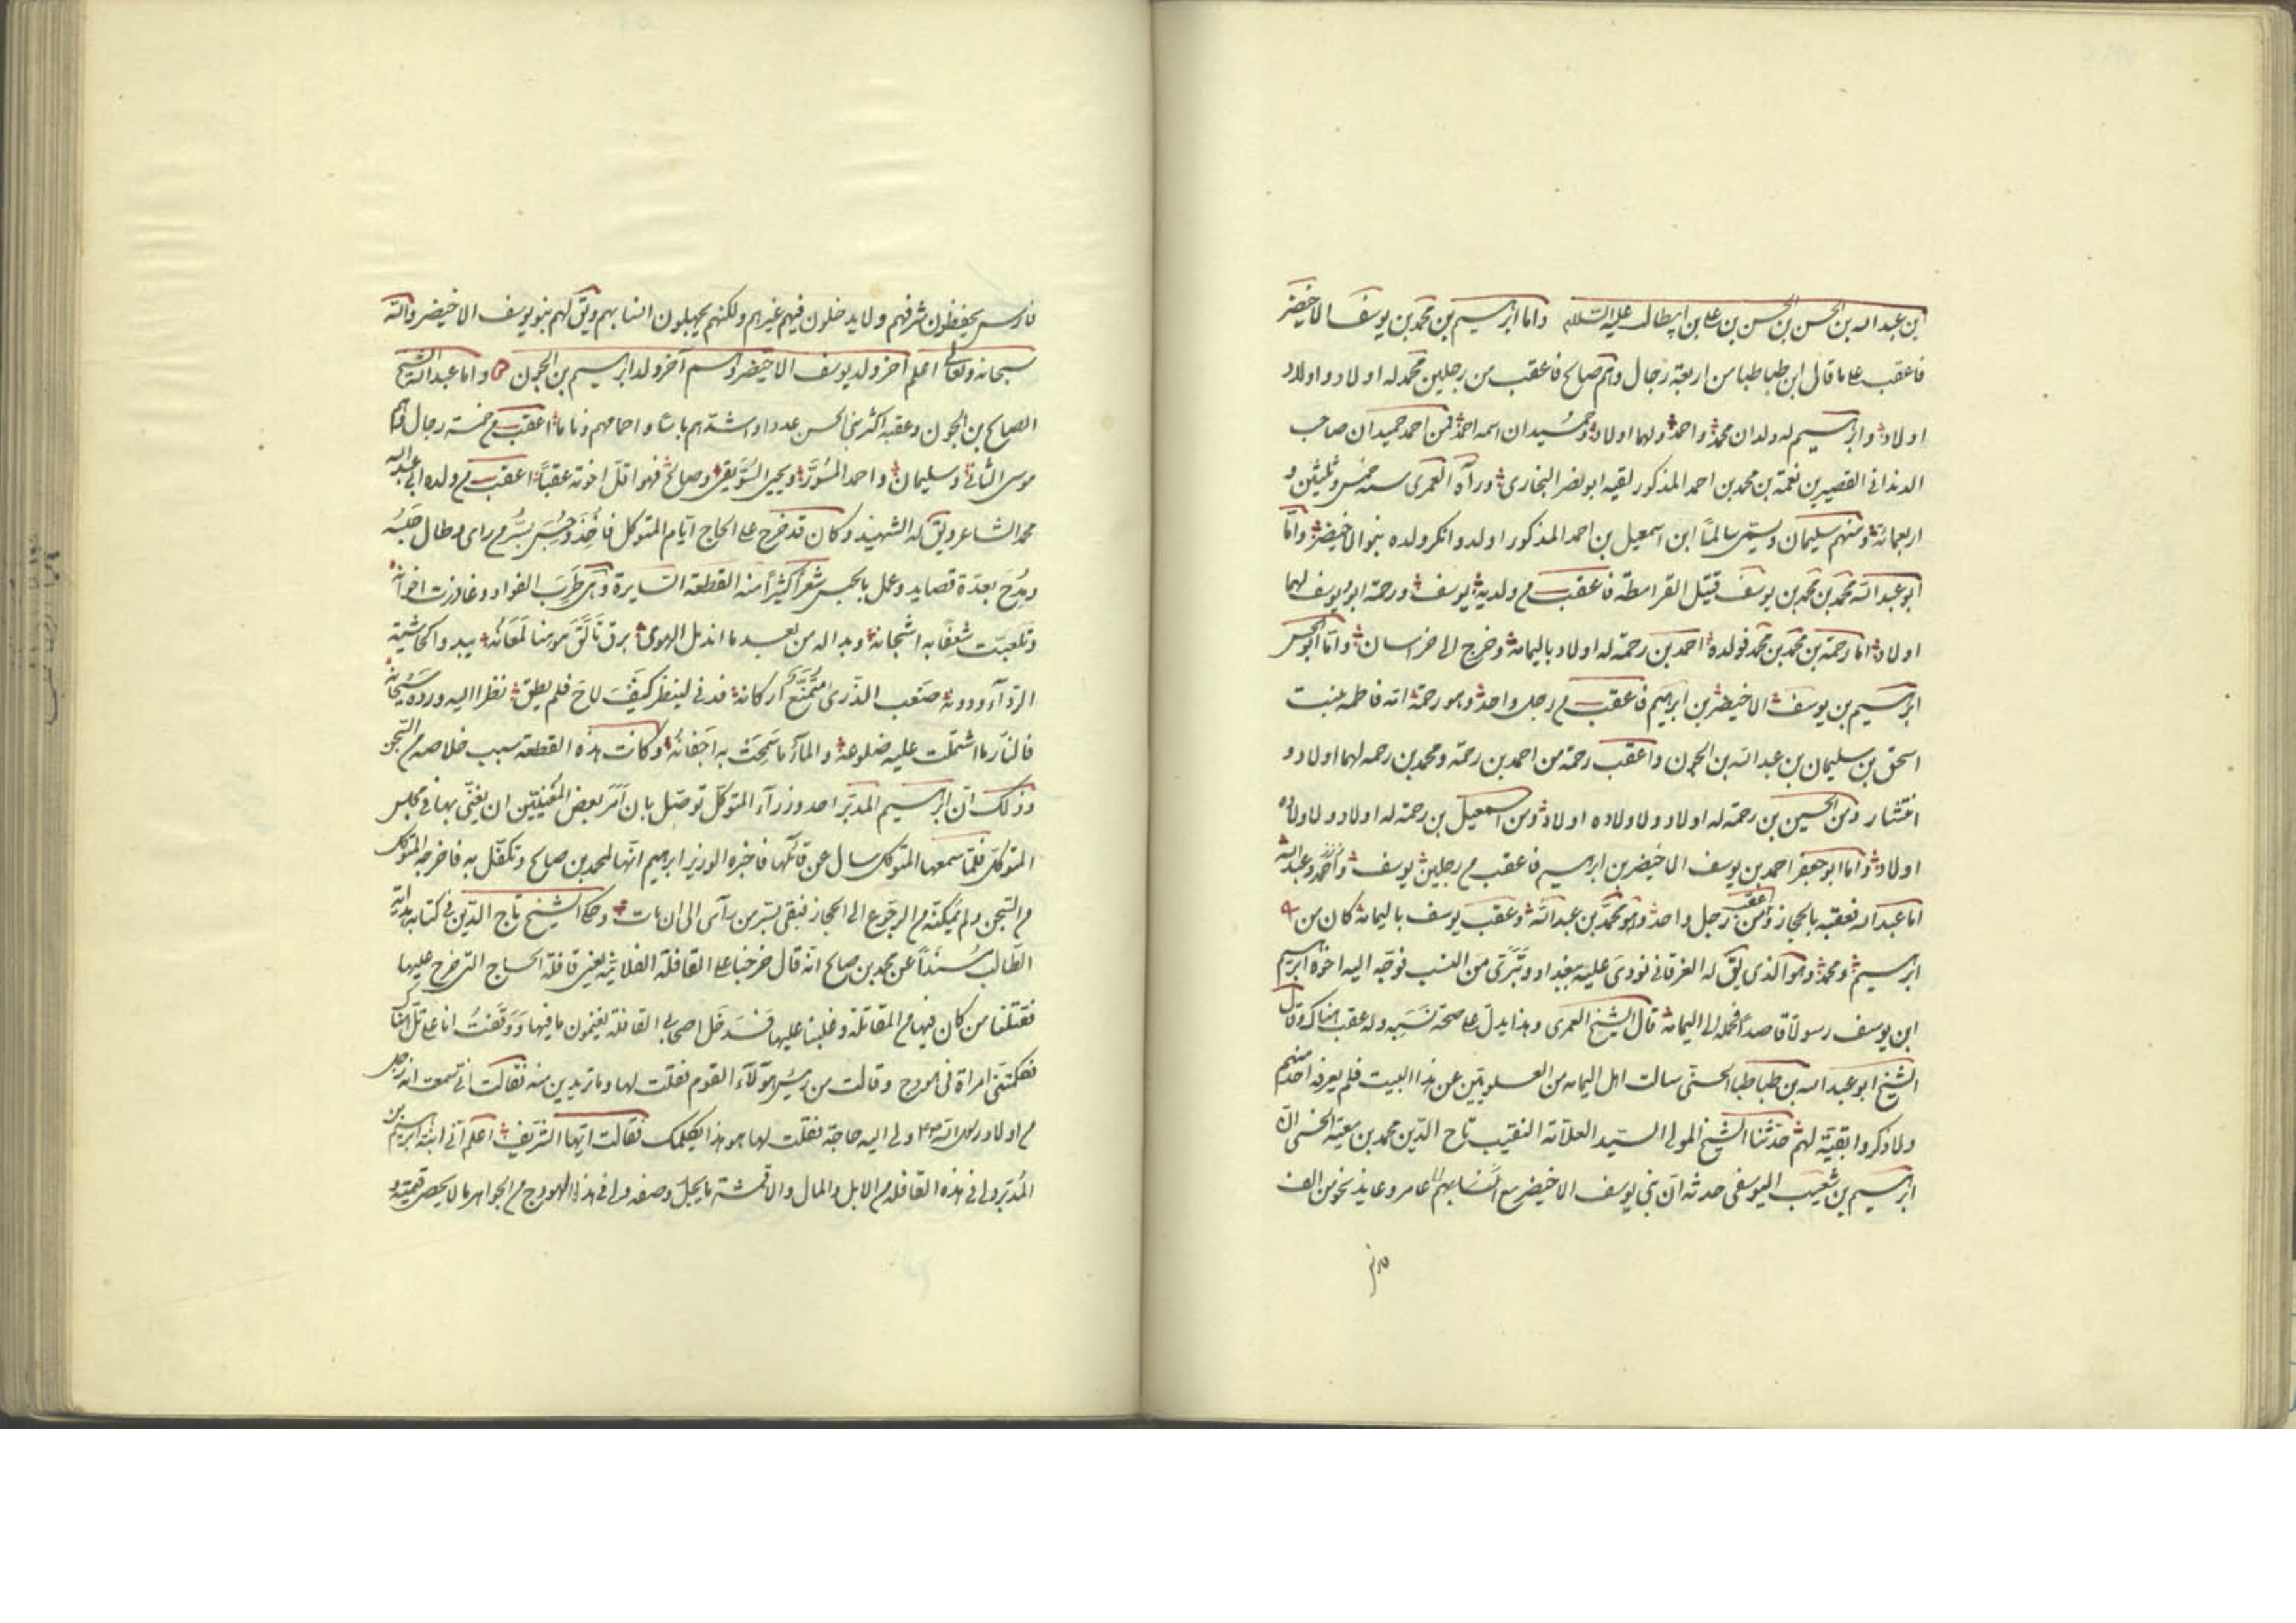 ابن عبد الله بن الحسن بن الحسن بن علی بن ابیطالب علیه السلام واما ابرهیم بن محمد بن یوسف الاخیضر
فاعقب علی ما قال ابن طباطبا من اربعة رجال وهم صالح فاعقب من رجلین محمد له اولاد و اولاد
اولاد وابرهیم له ولدان محمد واحمد ولهما اولاد وحمیدان اسمه احمد فمن احمد حمیدان صاحب
الدندانی القصیر بن نعمة بن محمد بن احمد المذکور لقیه ابو نصر البخاری ورآه العمری سنه خمس وثلثین و
اربعمائة ومنهم سلیمان ویسمی سالما ابن اسمعیل بن احمد المذکور اولد وانکر ولده بنو الاخیضر واما
ابو عبد الله محمد بن محمد بن یوسف قتیل القرامطة فاعقب من ولدیه یوسف ورحمة ابو یوسف لهما
اولاد اما رحمة بن محمد بن محمد فولده احمد بن رحمة له اولاد بالیمامة وخرج الی خراسان واما ابو الحسن
ابرهیم بن یوسف الاخیضر بن ابراهیم فاعقب من رجل واحد وهو رحمة امه فاطمه بنت
اسحق بن سلیمان بن عبد الله بن الجون واعقب رحمة من احمد بن رحمة ومحمد بن رحمه لهما اولاد و
انتشار ومن الحسین بن رحمة له اولاد ولاولاده اولاد ومن اسمعیل بن رحمة له اولاد ولاولاده
اولاد واما ابو جعفر احمد بن یوسف الاخیضر بن ابرهیم فاعقب من رجلین یوسف وعبد الله
اما عبد الله فعقبه بالحجاز وعقبه من رجل واحد وهو محمد بن عبد الله وعقب یوسف بالیمامة کان من
ابرهیم ومحمد وهو الذی یق له الغرقانی نودی علیه ببغداد وتبری من النسب فوجه الیه اخوه ابرهیم
ابن یوسف رسولا قاصدا فحمله الی الیمامة قال الشیخ العمری وهذا یدل علی صحة نسبه وله عقب هناک وقال
الشیخ ابو عبد الله بن طباطبا الحسنی سالت اهل الیمامه من العلویین عن هذا البیت فلم یعرفه احد منهم
ولا ذکروا بقیة لهم حدثنا الشیخ المولی السید العلامة النقیب تاج الدین محمد بن معیة الحسنی ان
ابرهیم بن شعیب الیوسفی حدثه ان بنی یوسف الاخیضر مع عامر وعاید نحو من الف
فارس
فارس یحفظون شرفهم ولا یدخلون فیهم غیرهم ولکنهم یجهلون انسابهم ویق لهم بنو یوسف الاخیضر والله
سبحانه وتعالی اعلم آخر ولد یوسف الاخیضر وهم آخر ولد ابرهیم بن الجون واما عبد الله الشیخ
الصالح بن الجون وعقبه اکثر بنی الحسن عددا واشدهم باسا واحماهم ذماما اعقب من خمسة رجال هم
موسی الثانی وسلیمان واحمد المسور ویحیی السویقی وصالح فهو اقل اخوته عقبا اعقب من ولده ابی عبد الله
محمد الشاعر ویق له الشهید وکان قد خرج علی الحاج ایام المتوکل فاخذ وحبس بسر من رای وطال حبسه
ومدح بعدة قصاید وعمل بالحبس شعرا کثیرا منه القطعة السایرة وهی طرب الفواد وعاودت احزانه
وتلعبت شعفا به اشجانه وبدا له من بعد ما اندمل الهوی برق تالق موهنا لمعانه یبدو کحاشیة
الرداء ودونه صعب الذری متمنع ارکانه فدنی لینظر کیف لاح فلم یطق نظرا الیه ورده سجانه
فالنار ما اشتملت علیه ضلوعه والماء ما سمحت به اجفانه وکانت هذه القطعة سبب خلاصه من السجن
وذلک ان ابرهیم المدبر احد وزرآء المتوکل توصل بان امر بعض المغنیین ان یغنی بها فی مجلس
المتوکل فلما سمعها المتوکل سال عن قائلها فاخبره الوزیر ابراهیم انها لمحمد بن صالح وتکفل به فاخرجه المتوکل
من السجن ولم یمکنه من الرجوع الی الحجاز فبقی بسر من رآی الی ان مات وحکی الشیخ تاج الدین فی کتابه هدایة
الطالب مسندا عن محمد بن صالح انه قال خرجنا علی القافلة الفلانیه یعنی قافلة الحاج التی خرج علیها
فقتلنا من کان فیها من المقاتلة وغلبنا علیها فدخل اصحابی القافلة یغنمون ما فیها ووقفت انا علی تل هناک
فکلمتنی امراة فی هودج وقالت من رئیس هؤلآء القوم فقلت لها وما تریدین منه فقالت انی سمعت انه رجل
من اولاد رسول الله ص ولی الیه حاجة فقلت لها هو هذا یکلمک فقالت ایها الشریف اعلم انی ابنة ابرهیم بن
المدبر ولی فی هذه القافلة من الابل والمال والاقمشة ما یجل وصفه ولی فی هذا الهودج من الجواهر ما لا یحصر قیمته و